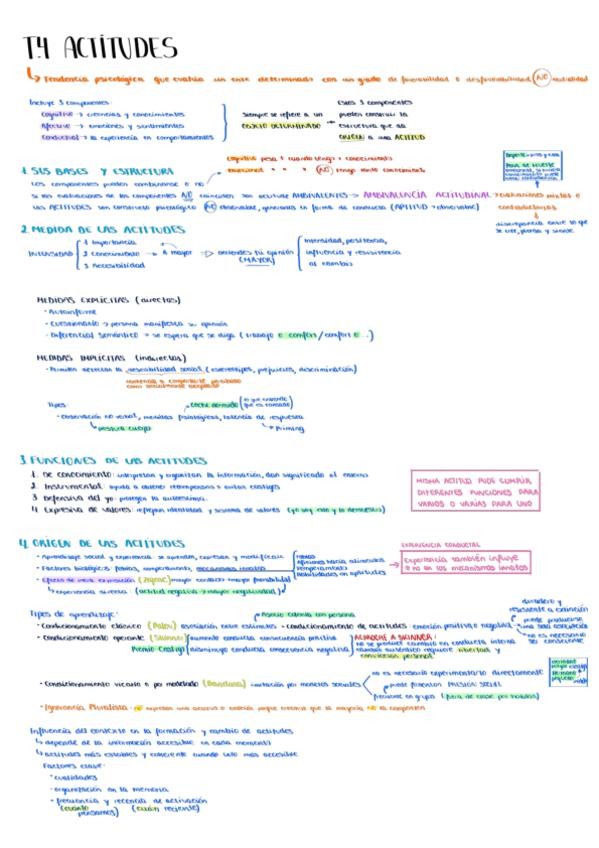 T.4 ACTITUDES
Tendencia psicológica que evalúa un ente determinado con un grado de favorabilidad o desfavorabilidad NO actividad
Incluye 3 componentes:
Cognitivo → creencias y conocimientos
Afectivo → emociones y sentimientos
Conductual → la experiencia en comportamientos
Siempre se refiere a un
OBJETO DETERMINADO
Estos 3 componentes
pueden construir la
estructura que da
ORIGEN a una ACTITUD
1. SUS BASES Y ESTRUCTURA
cognitivo pesa + cuando tengo + conocimiento
emocional " " " NO tengo tanto conocimiento
Los componentes pueden combinarse o no
Si las evaluaciones de los componentes NO coinciden son actitudes AMBIVALENTES → AMBIVALENCIA ACTITUDINAL → evaluaciones mixtas o contradictorias
Las ACTITUDES son constructo psicológico NO observable, ginera en forma de conducta (APTITUD → observable)
discrepancia entre lo que
se cree, piensa y siente
2. MEDIDA DE LAS ACTITUDES
INTENSIDAD
1 Importancia
2 conocimiento → A mayor → defiendes tu opinión
3 Accesibilidad
(MAYOR)
Intensidad, persistencia,
influencia y resistencia
al cambio
MEDIDAS EXPLÍCITAS (directas)
· Autoinforme
· Cuestionario → persona manifiesta su opinión
· Diferencial semántico → se espera que se diga (trabajo o confort/confort o ..)
MEDIDAS IMPLÍCITAS (indirectas)
· Permiten detectar la deseabilidad social (estereotipos, prejuicios, discriminación)
tendencia a comportarse
como socialmente aceptado
Tipos:
· Observación no verbal, medidas fisiológicas, latencia de respuesta
postura cuerpo
Priming
3. FUNCIONES DE LAS ACTITUDES
1. De conocimiento: interpretan y organizan la información, dan significado al entorno
2. Instrumental: ayuda a obtener recompensas o evitar castigos
3. Defensiva del yo: protegen la autoestima.
4. Expresiva de valores: reflejan identidad y sistema de valores (yo soy esto y lo demuestro)
MISMA ACTITUD PUEDE CUMPLIR
DIFERENTES FUNCIONES PARA
VARIOS O VARIAS PARA UNO
4. ORIGEN DE LAS ACTITUDES
· Aprendizaje social y experiencia: se aprenden, expresan y modifican
· Factores biológicos: fobias, temperamento, mecanismos innatos
aficiones hacia alimentos
temperamento
habilidades en aptitudes
EXPERIENCIA CONDUCTUAL
Experiencia también influye
o no en los mecanismos innatos
· Efecto de mera exposición (Zajonc) mayor contacto = mayor favorabilidad
experiencia directa (actitud negativa → mayor negatividad)
Tipos de aprendizaje:
Asocio colonia con persona
· Condicionamiento clásico (Pavlov) asociación entre estímulos · Condicionamiento de actitudes: emoción positiva o negativa
duradero y
resistente a extinción
puede producirse
no es necesario
ser consciente
· Condicionamiento operante (Skinner)
aumenta conducta consecuencia positiva
disminuye conducta consecuencia negativa
Premio Castigo
REPROCHE A SKINNER:
no se produce cambio en conducta interna
cambio auténtico requiere libertad y
convicción personal
· Condicionamiento vicario o por modelado (Bandura) imitación por modelos sociales
no es necesario experimentarlo directamente
puede fomentar presión social
frecuente en grupos
· Ignorancia Pluralista: no expresan una creencia o opinión porque creemos que la mayoría no la comparten
Influencia del contexto en la formación y cambio de actitudes
depende de la información accesible en cada momento
actitudes más estables y coherente cuanto sea más accesible
Factores clave:
· cualidades
· organización en la memoria
· frecuencia y recencia de activación
(cuánto pensamos) (cuán reciente)